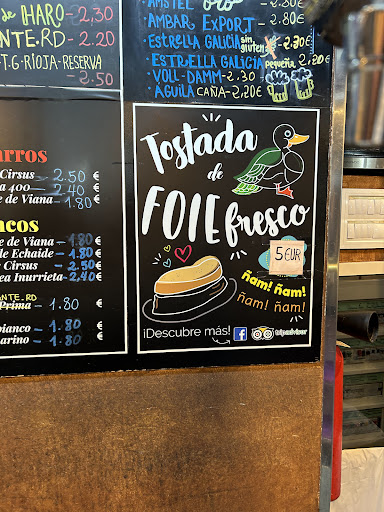 de HARO - 2,30
NTE.RD - 2.20
T.G RIOJA-RESERVA
- 2.50
AMSTEL ORO - 2.80€
· AMBAR EXPORT - 2.80€
· ESTRELLA GALICIA sin gluten - 2,30€
· ESTRELLA GALICIA pequeña 2,20€
· VOLL-DAMM - 2.30
· AGUILA CAÑA - 2,20€
arros
Cirsus - 2.50 €
a 400 - 2.40 €
e de Viana - 1.80 €
ncos
e de Viana - 1.80 €
de Echaide - 1.80 €
Cirsus - 2.50 €
ea Inurrieta - 2.40 €
ANTE.RD
Prima - 1.80 €
bianco - 1.80 €
arino - 1.80 €
Tostada
de
FOIE fresco
5 EUR
ñam! ñam!
ñam! ñam!
¡Descubre más! f tripadvisor